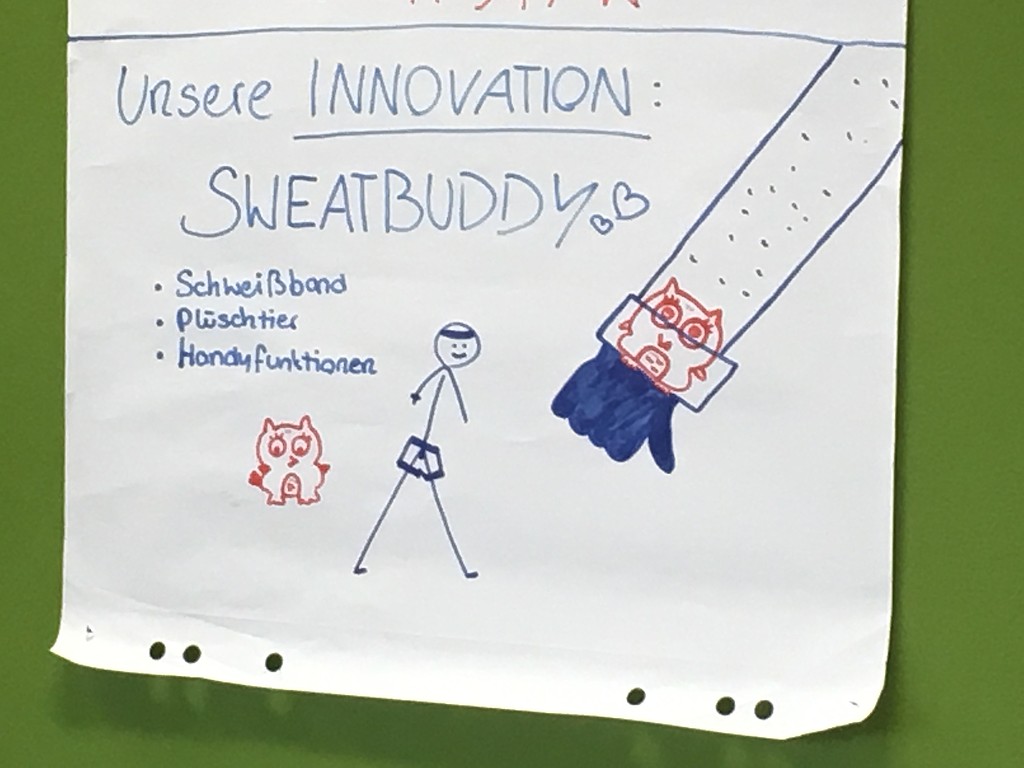 Unsere INNOVATION:
SWEATBUDDY
• Schweißband
• Plüschtier
• Handyfunktionen